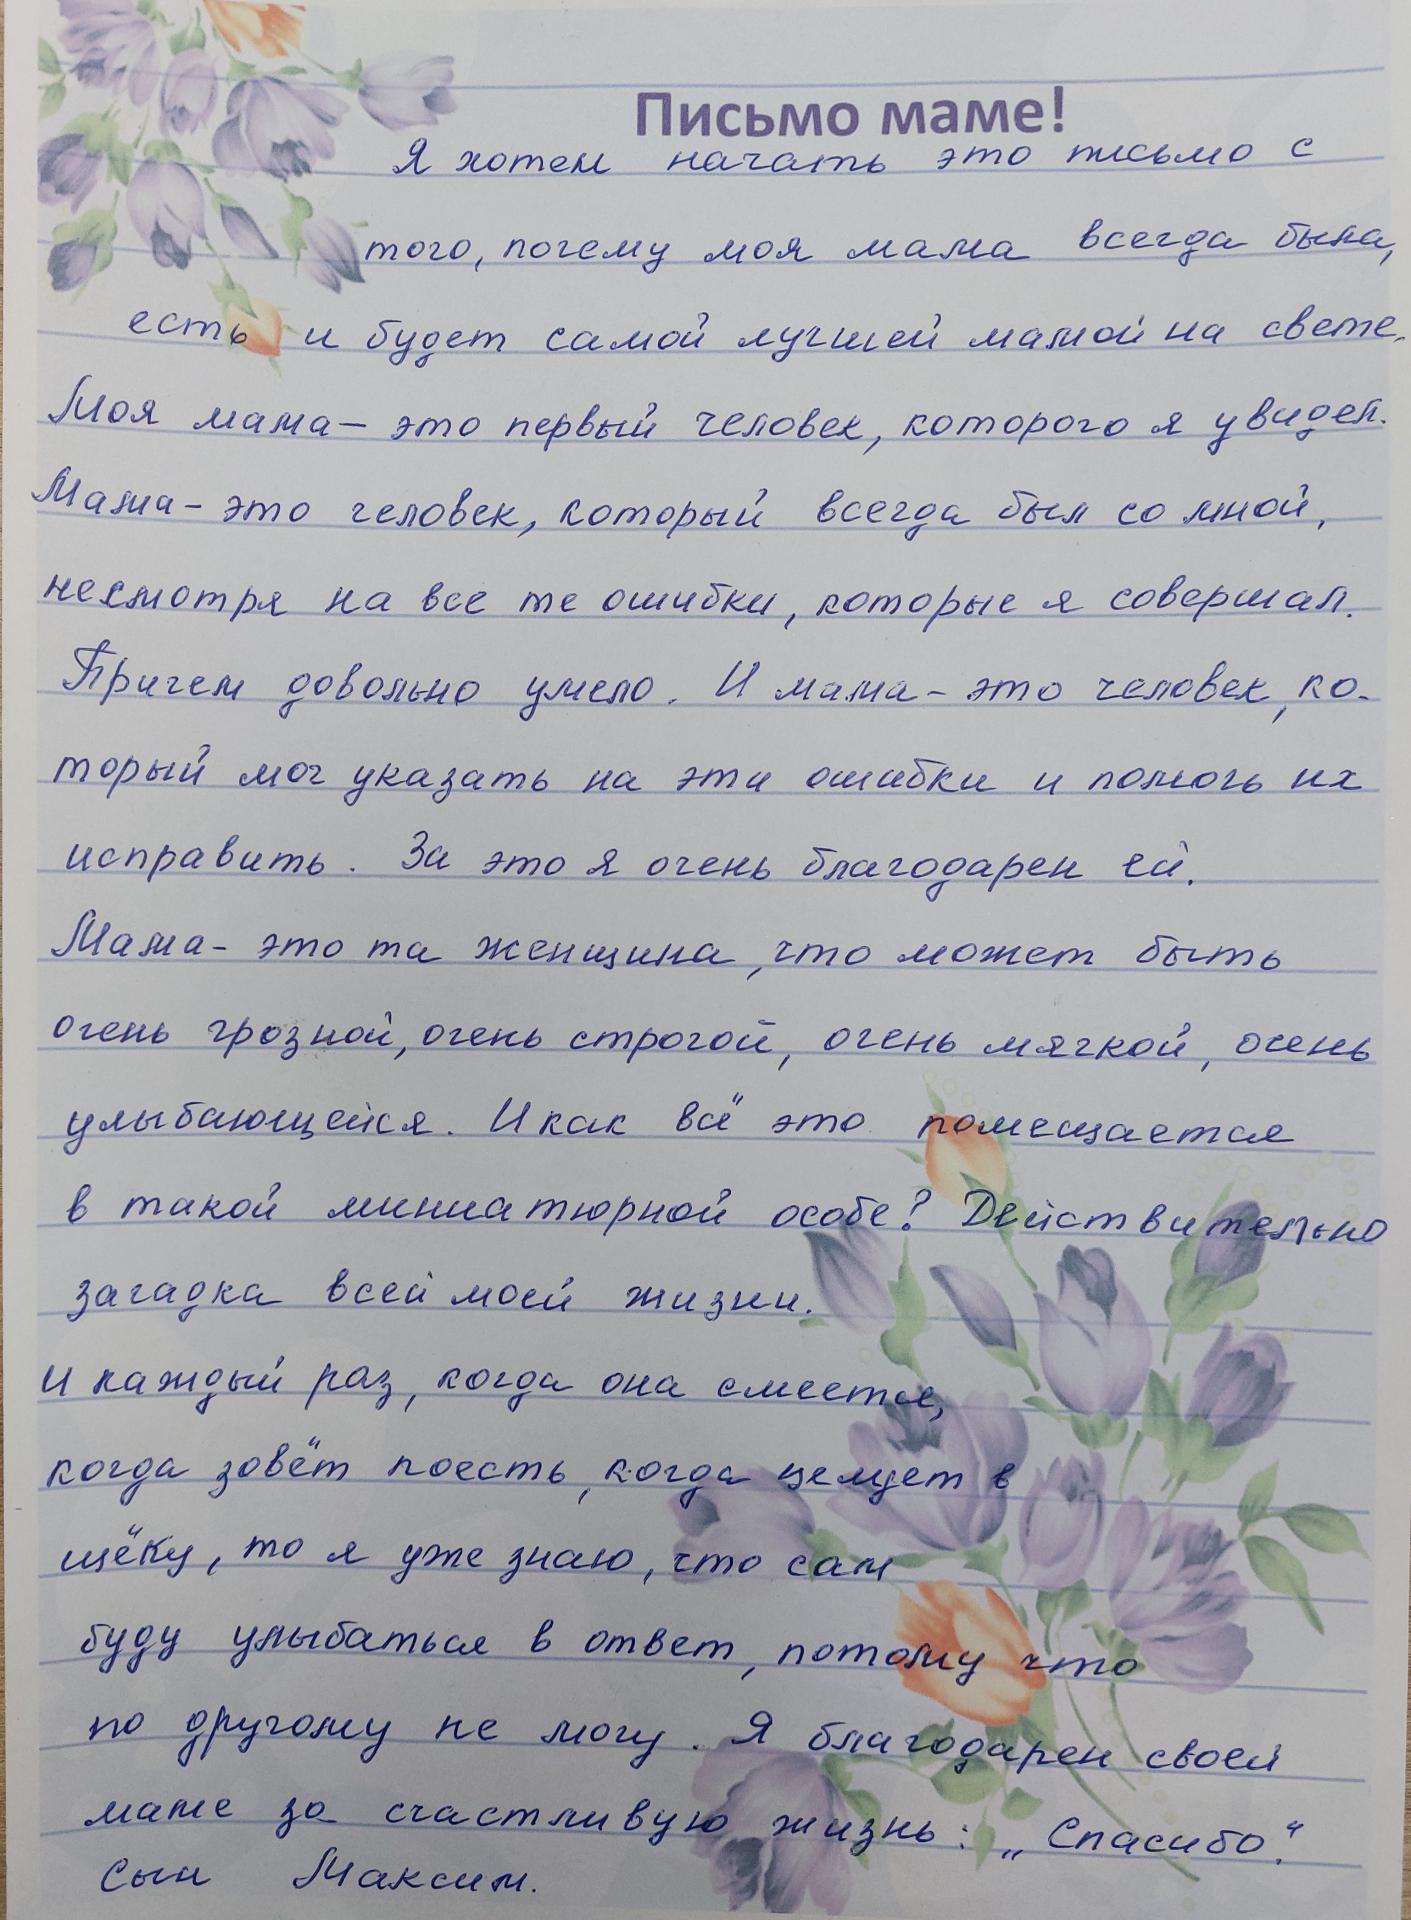 Письмо маме!
Я хотел начать это письмо с
того, почему моя мама всегда была,
есть и будет самой лучшей мамой на свете.
Моя мама – это первый человек, которого я увидел.
Мама – это человек, который всегда был со мной,
несмотря на все те ошибки, которые я совершал.
Причем довольно умело. И мама – это человек, ко-
торый мог указать на эти ошибки и помочь их
исправить. За это я очень благодарен ей.
Мама – это та женщина, что может быть
очень грозной, очень строгой, очень мягкой, очень
улыбающейся. И как всё это помещается
в такой миниатюрной особе? Действительно
загадка всей моей жизни.
И каждый раз, когда она смеется,
когда зовёт поесть, когда целует в
щёку, то я уже знаю, что сам
буду улыбаться в ответ, потому что
по другому не могу. Я благодарен своей
маме за счастливую жизнь: „Спасибо."
Сын Максим.